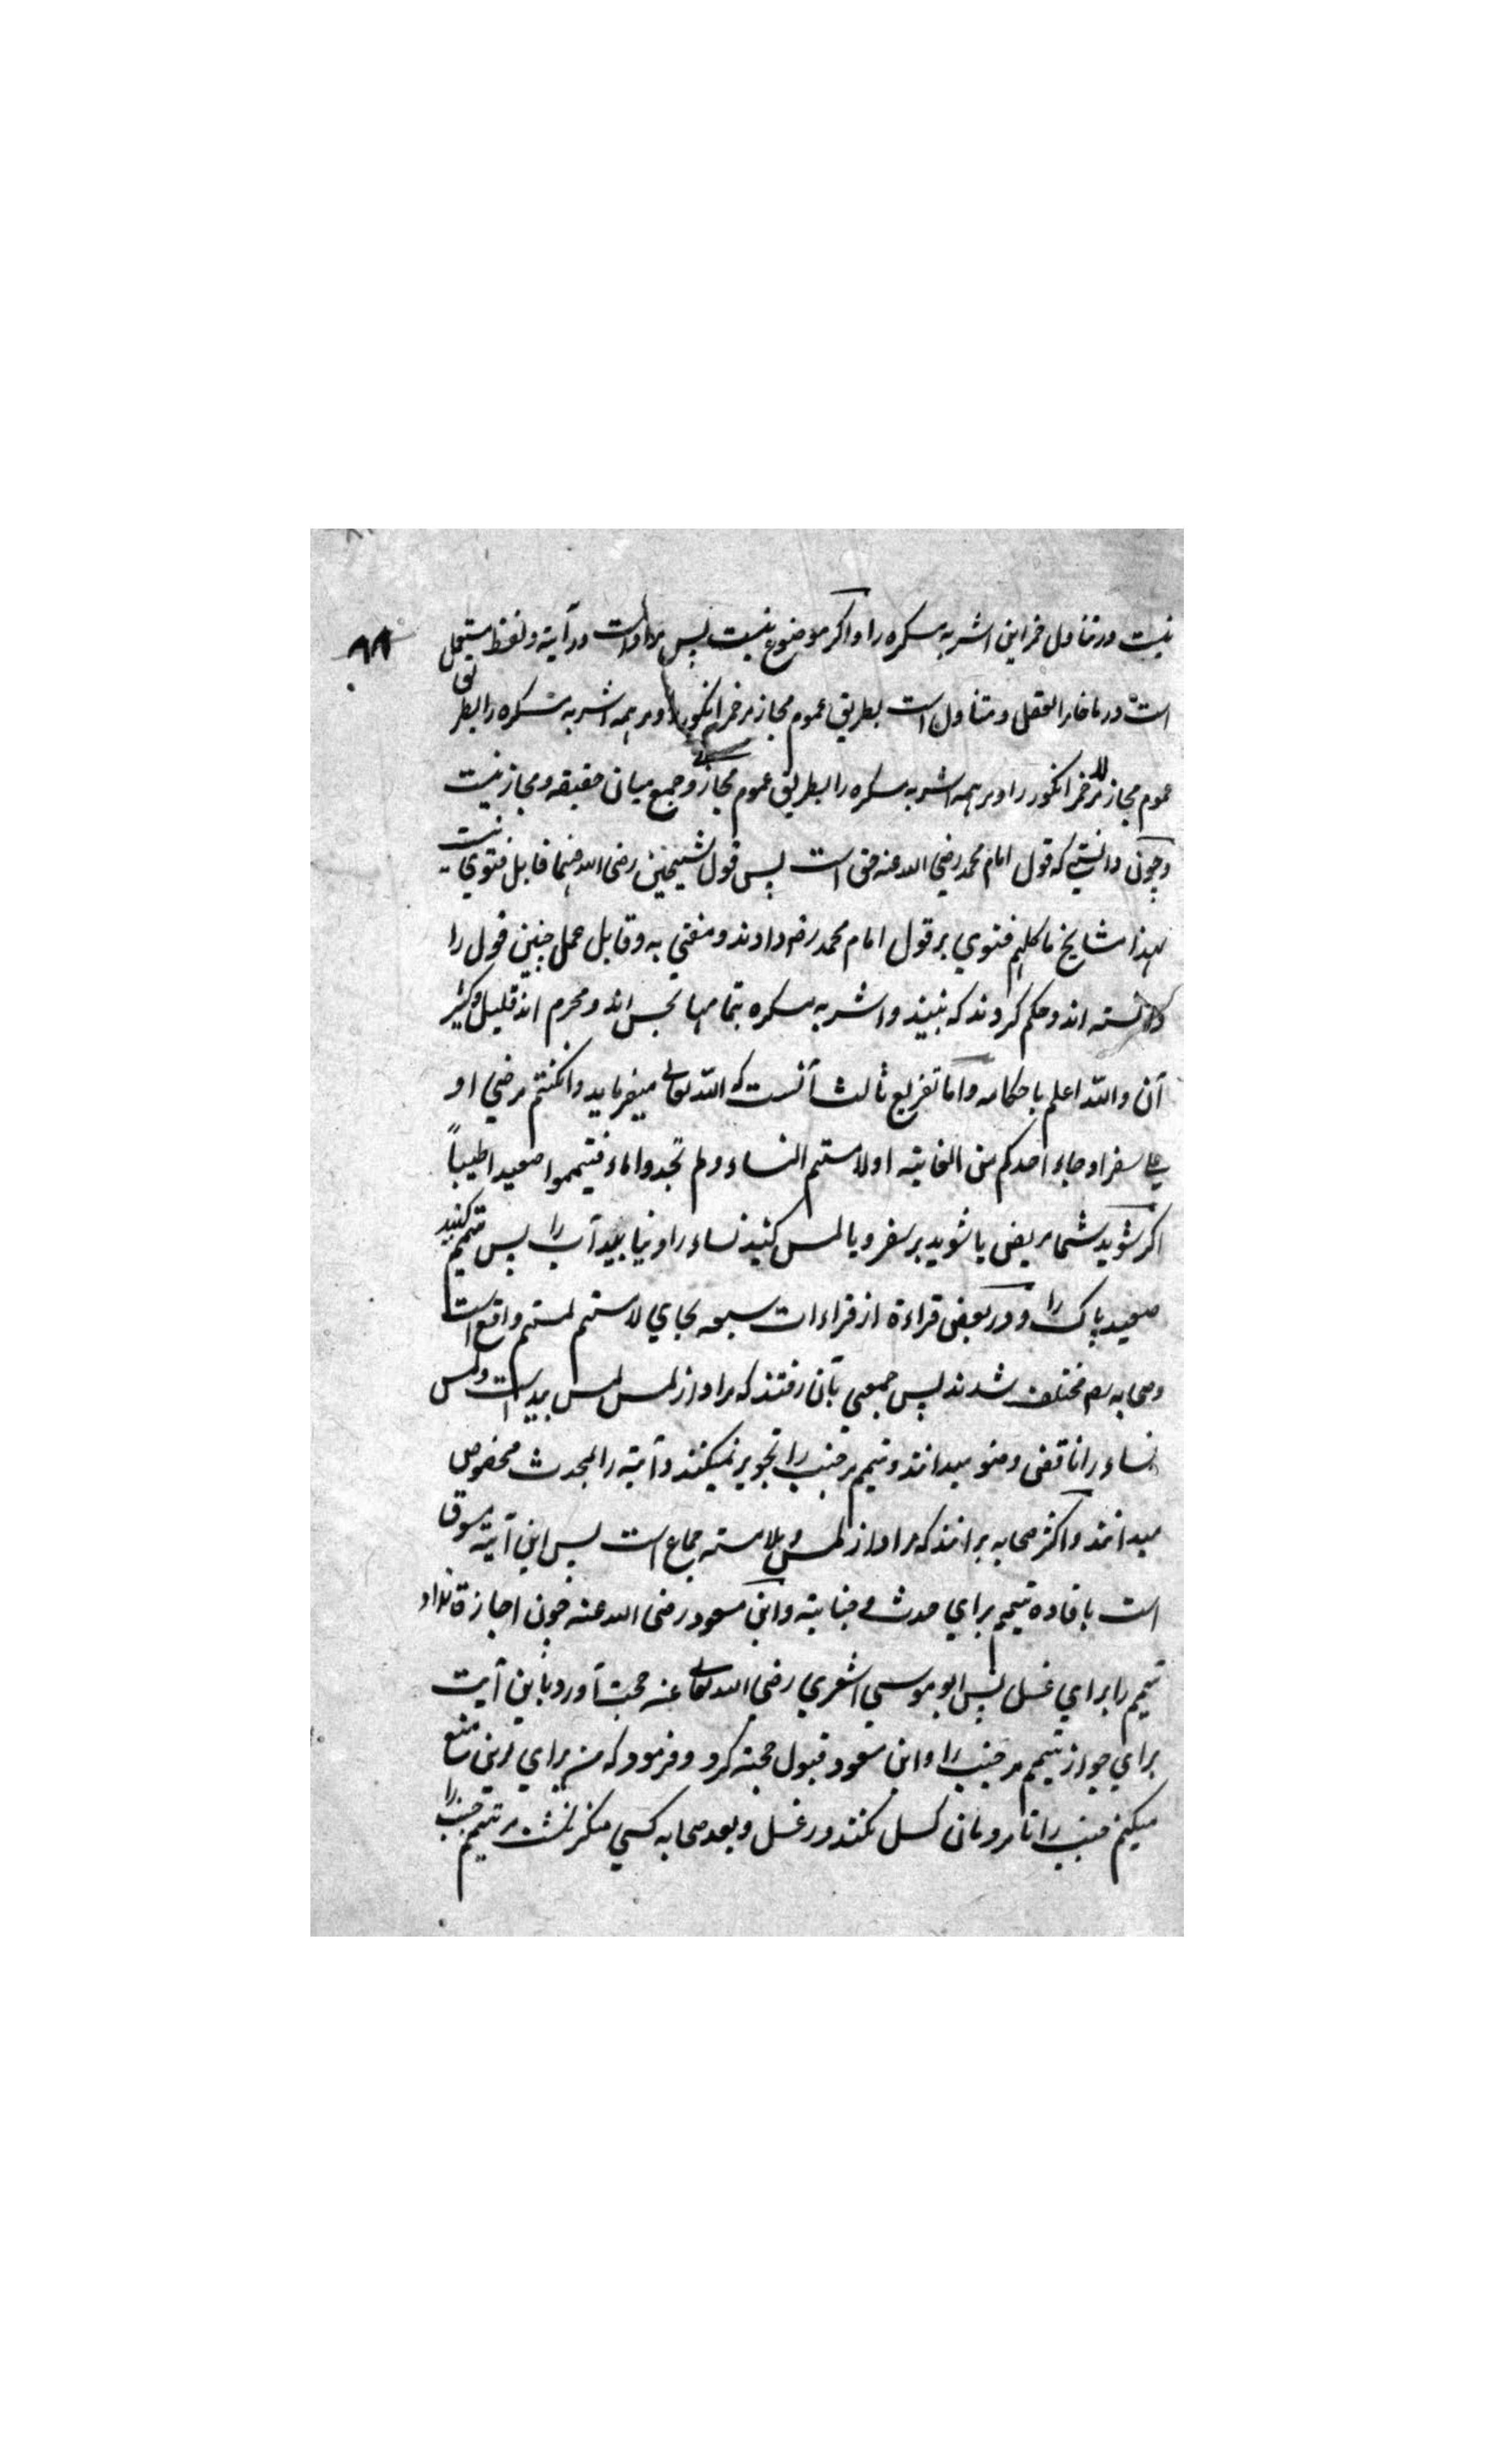 نیست در تناول خمر این اشربه مسکره را و اگر موضوع نیست پس مراد است در آیة و لفظ مستعمل
۸۸
است در ما خامر العقل و متناول است بطریق عموم مجاز مر خمر انگور را و مر همه اشربه مسکره را بطریق
عموم مجاز مر خمر انگور را و مر همه اشربه مسکره را بطریق عموم مجازی و جمع میان حقیقه و مجاز نیست
و چون دانستی که قول امام محمد رضی الله عنه حق است پس قول شیخین رضی الله عنهما قابل فتوی نیست
لهذا مشایخ ما کلهم فتوی بر قول امام محمد رضه دادند و مفتی به و قابل عمل چنین قول را
دانسته اند و حکم کردند که نبیذ و اشربه مسکره بتمامها نجس اند و محرم اند قلیل و کثیر
آن والله اعلم باحکامه و اما تفریع ثالث آنست که الله تعالی میفرماید وان کنتم مرضی او
علی سفر او جاء احدکم من الغایته او لامستم النساء و لم تجدوا ماء فتیمموا صعیدا طیباً
اگر شوید شما مریض یا شوید بر سفر و یا لمس کنید نساء را و نیابید آب را پس تیمم کنید
صعید پاک را و در بعض قراءة از قراءات سبعه بجای لامستم لمستم واقع است
و صحابه رضه مختلف شدند پس جمعی بآن رفتند که مراد از لمس لمس بید است و لمس
نساء را ناقض وضو میدانند و تیمم مر جنب را تجویز نمیکنند و آیة را بحدث مخصوص
میدانند و اکثر صحابه برانند که مراد از لمس و ملامسته جماع است پس این آیته مسوق
است بافاده تیمم برای حدث و جنابته و ابن مسعود رضی الله عنه چون اجازة نداد
تیمم را برای غسل پس ابو موسی اشعری رضی الله تعالی عنه حجت آورد باین آیت
برای جواز تیمم مر جنب را و ابن مسعود قبول حجته کرد و فرمود که من برای این منع
میکنم جنب را تا مردمان کسل نکنند در غسل و بعد صحابه کسی منکر نشد مر تیمم جنب را